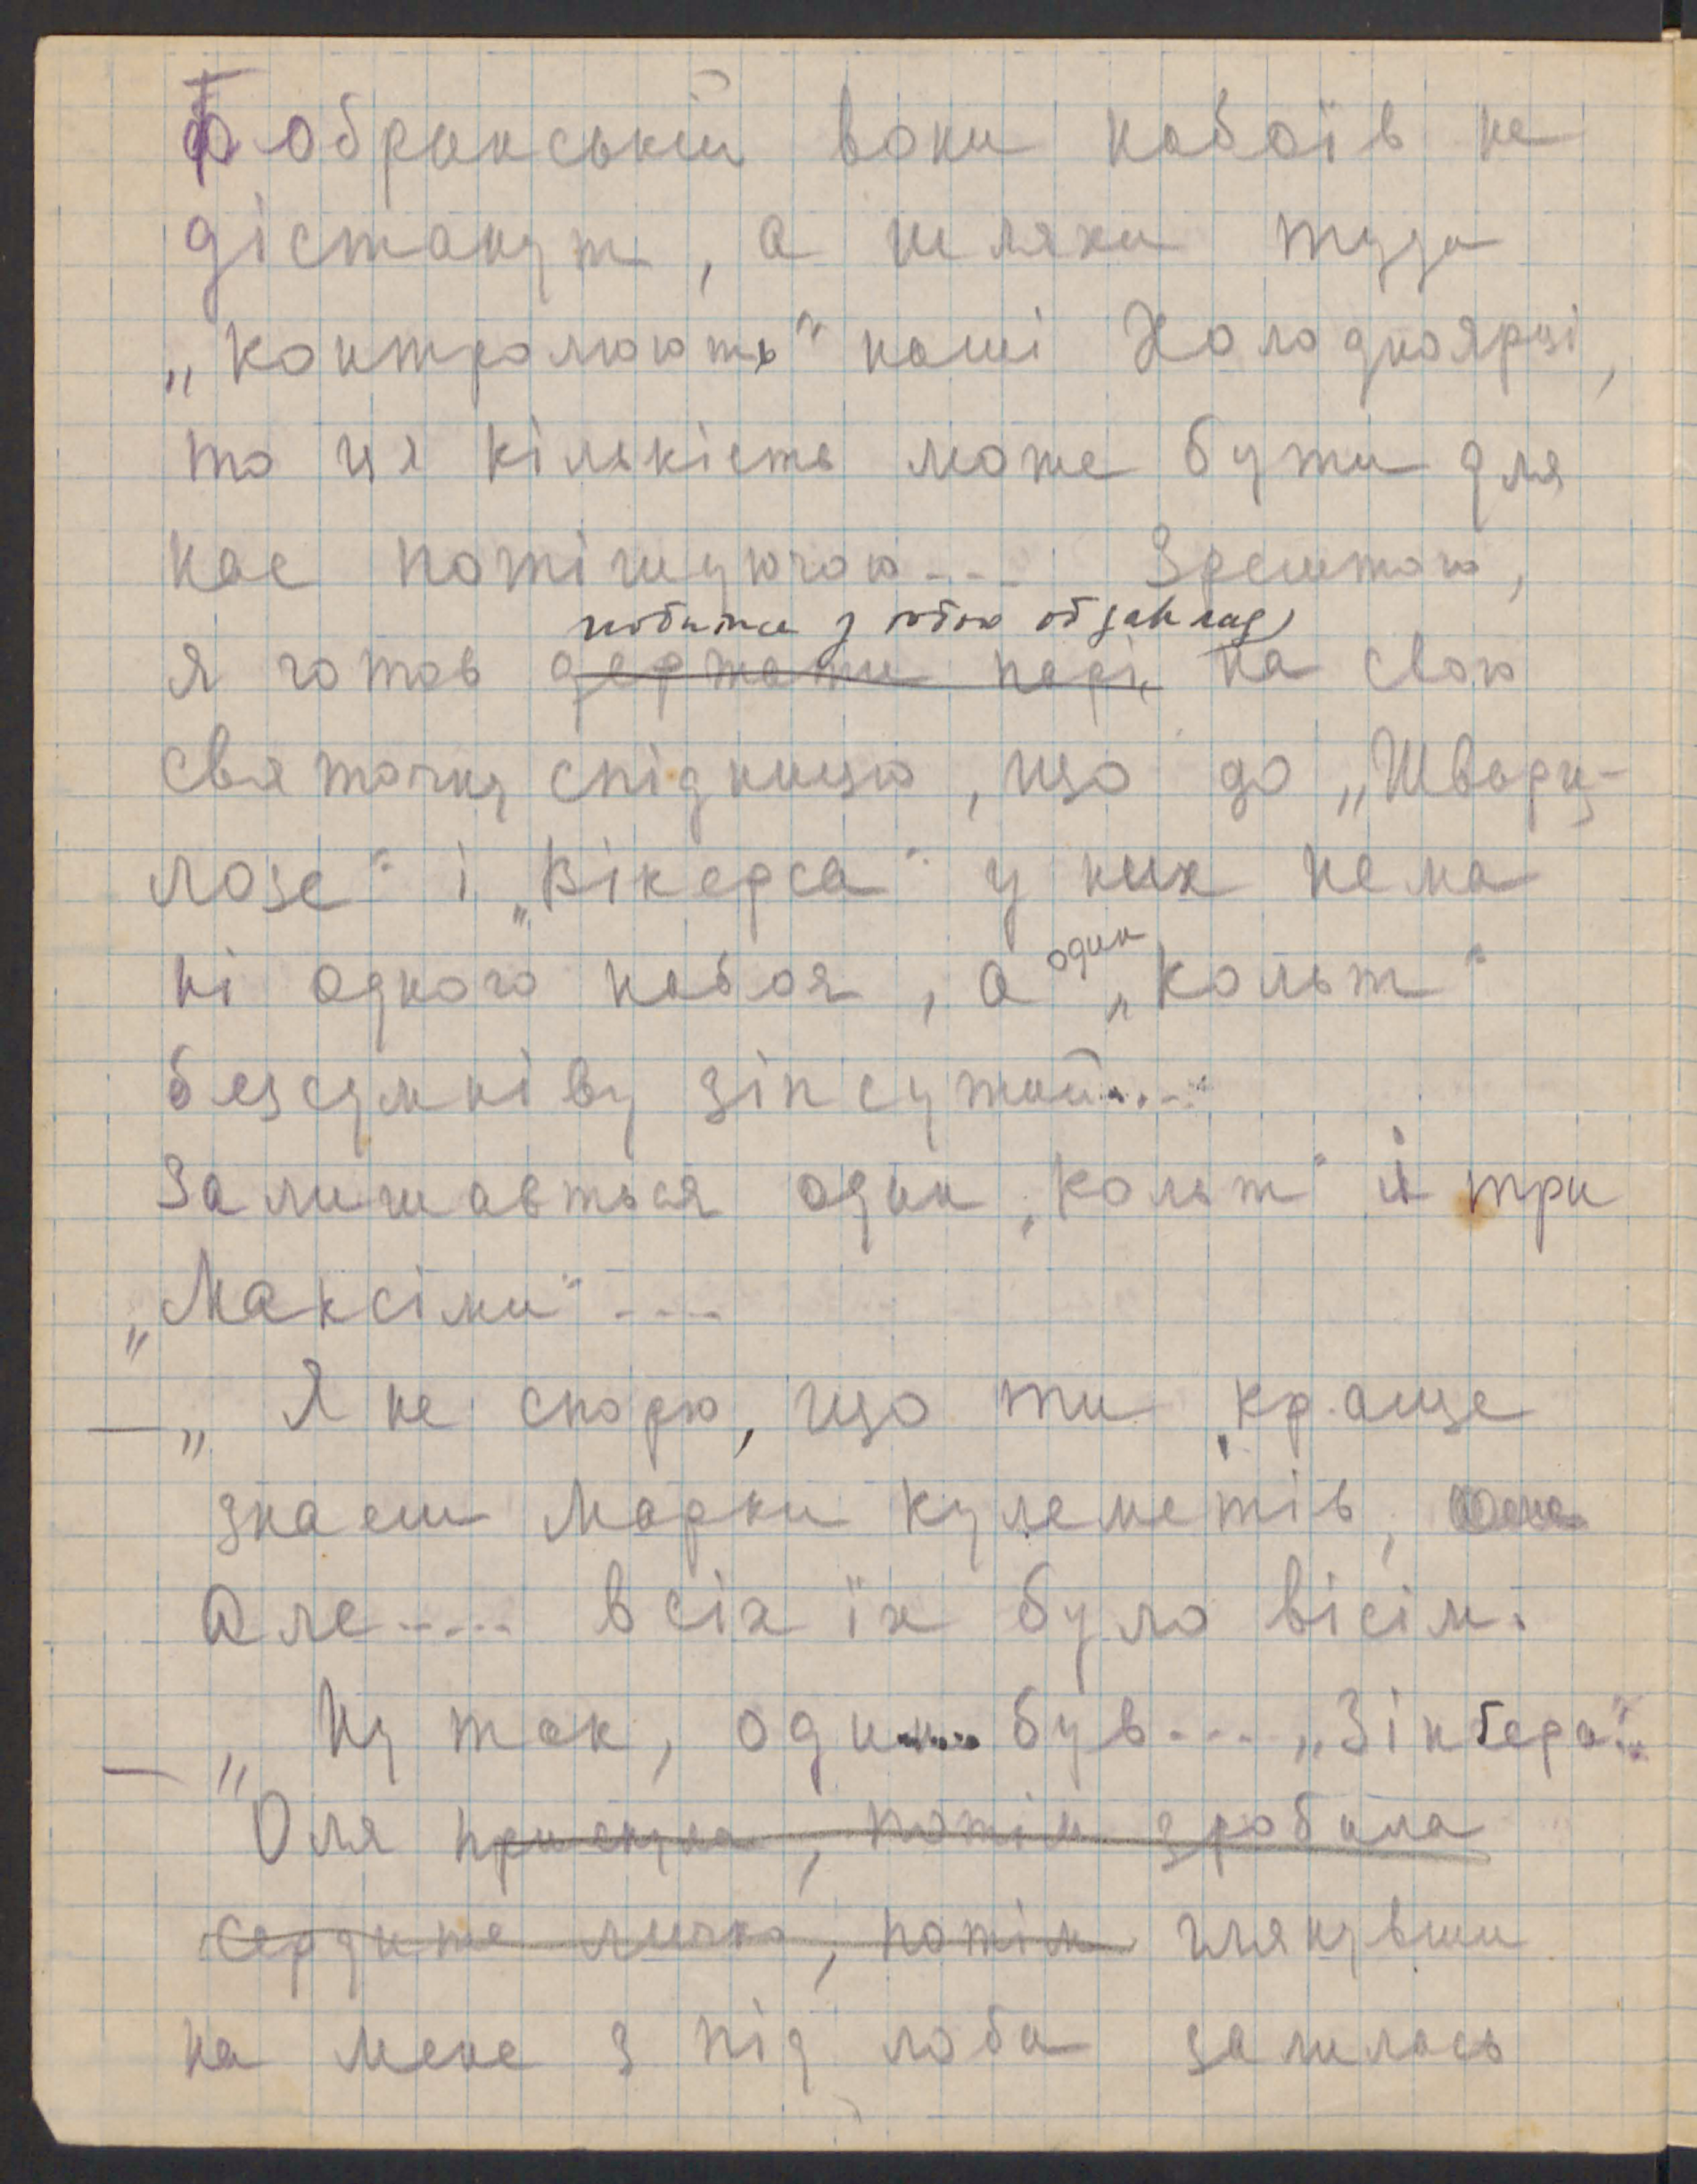 Бобринській вони набоїв не
дістануть, а шляхи туди
„контролюють“ наші Холодноярці,
то ця кількість може бути для
нас потішуючою... Зрештою,
побитися з тобою об заклад
я готов держати парі на свою
святочну спідницю, що до „Шварц-
лозе“ і „Вікерса“ у них нема
ні одного набоя, а один „Кольт“
безсумніву зіпсутий....
Залишається один „Кольт“ й три
„Максіми“....
—„ Я не спорю, що ти краще
знаєш марки кулеметів,
але..... всіх їх було вісім.
—„ Ну так, один... був... „Зінгера“..
Оля приснула, потім зробила
сердите личко, потім глянувши
на мене з під лоба залилась